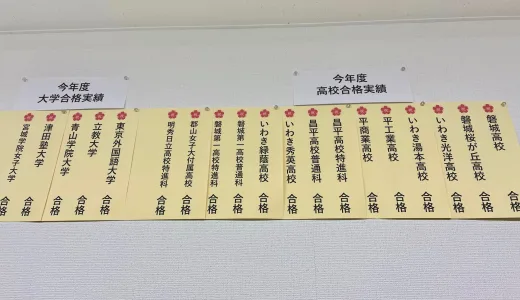 今年度
高校合格実績
磐城高校 合格
磐城桜が丘高校 合格
いわき光洋高校 合格
いわき湯本高校 合格
平工業高校 合格
平商業高校 合格
昌平高校特進科 合格
昌平高校普通科 合格
いわき秀英高校 合格
いわき緑蔭高校 合格
磐城第一高校普通科 合格
磐城第一高校特進科 合格
郡山女子大付属高校 合格
明秀日立高校特進科 合格
今年度
大学合格実績
東京外国語大学 合格
立教大学 合格
青山学院大学 合格
津田塾大学 合格
宮城学院女子大学 合格